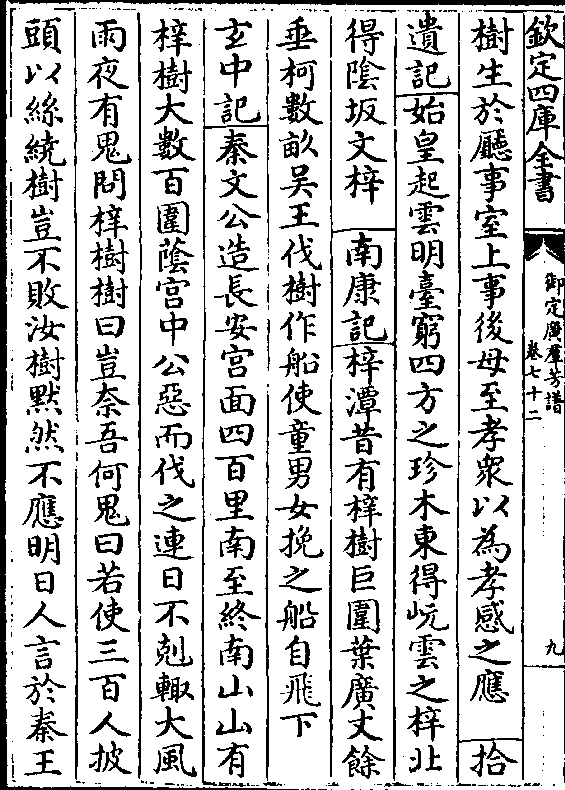 欽定四庫全書
御定廣羣芳譜
卷七十二
九
樹生於廳事室上事後母至孝衆以為孝感之應 拾
遺記始皇起雲明臺窮四方之珍木東得岏雲之梓北
得陰坂文梓 南康記梓潭昔有梓樹巨圍葉廣丈餘
垂柯數畝吳王伐樹作船使童男女挽之船自飛下
玄中記秦文公造長安宮面四百里南至終南山山有
梓樹大數百圍蔭宮中公惡而伐之連日不剋輙大風
雨夜有鬼問梓樹樹曰豈奈吾何鬼曰若使三百人披
頭以絲繞樹豈不敗汝樹默然不應明日人言於秦王